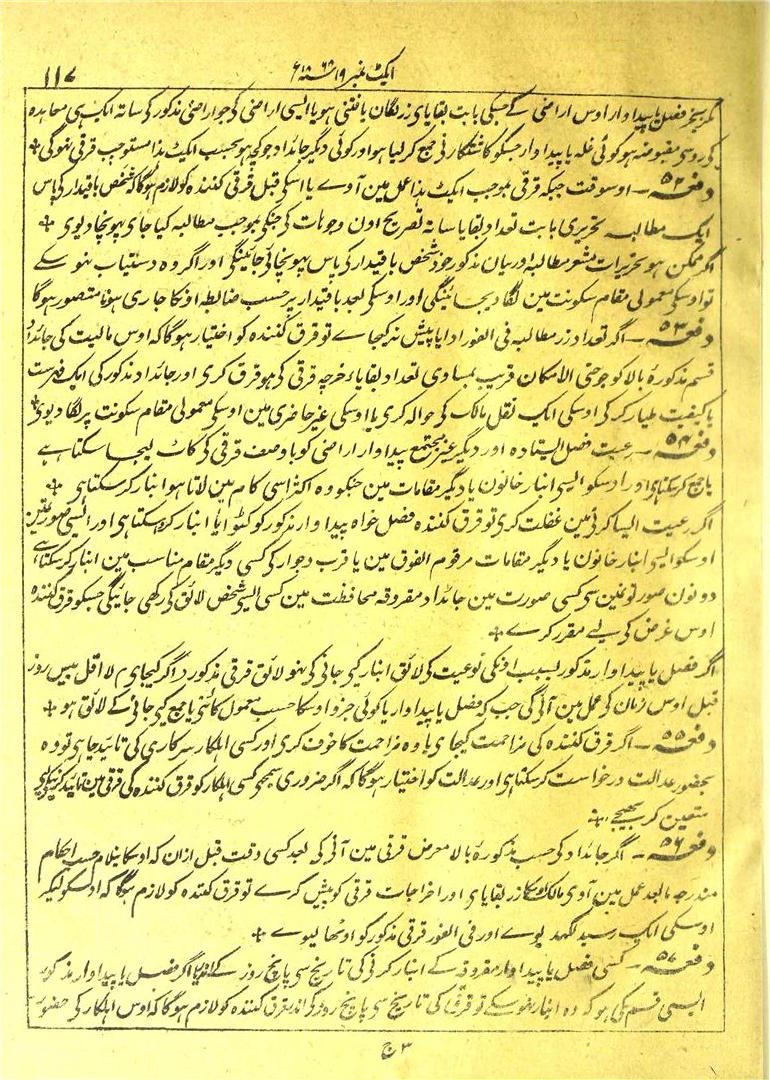 ایکٹ نمبر ۱۹ سنہ ۱۸۶۸ ع
۱۱۷
مگر بجز فصل یا پیداوار اوس اراضی کے جسکی بابت بقایای زر لگان یافتنی ہو یا ایسی اراضی کی جو اراضی مذکور کی ساتہ ایک ہی معاہدہ
کی روسی مقبوضہ ہو کوئی غلہ یا پیداوار جسکو کاشتکار نی جمع کر لیا ہو اور کوئی دیگر جائداد جو کچہ ہو بحسب ایکٹ ہذا مستوجب قرقی نہوگی ✤
دفعہ ۵۲ ۔ اوسوقت جبکہ قرقی بموجب ایکٹ ہذا عمل مین آوے یا اسکی قبل قرقی کنندہ کو لازم ہوگا کہ شخص باقیدار کی پاس
ایک مطالبہ تحریری بابت تعداد بقایا ساتہ تصریح اون وجوہات کی جنکی بموجب مطالبہ کیا جای پہونچا دیوی ✤
اگر ممکن ہو تحریرات مشعر مطالبہ و بیان مذکور خود شخص باقیدار کی پاس پہونچائی جائینگی اور اگر وہ دستیاب نہو سکے
تو اوسکی معمولی مقام سکونت مین لگا دیجائینگی اور اوسکی بعد باقیدار پر حسب ضابطہ اونکا جاری ہونا متصور ہوگا
دفعہ ۵۳ ۔ اگر تعداد زر مطالبہ فی الفور ادا یا پیش نہ کیجاے تو قرق کنندہ کو اختیار ہوگا کہ اوس مالیت کی جائداد
قسم مذکورۂ بالا کو جو حتی الامکان قریب بمساوی تعداد بقایا و خرچہ قرقی کی ہو قرق کری اور جائداد مذکور کی ایک فہرست
یا کیفیت طیار کر کی اوسکی ایک نقل مالک کی حوالہ کری یا اوسکی غیر حاضری مین اوسکی معمولی مقام سکونت پر لگا دیوی ✤
دفعہ ۵۴ ۔ رعیت فصل ایستادہ اور دیگر غیر مجتمع پیداوار اراضی کو باوصف قرقی کی کاٹ لیجا سکتا ہے
یا جمع کر سکتا ہی اور اوسکو ایسی انبار خانون یا دیگر مقامات مین جنکو وہ اکثر اسی کام مین لاتا ہو انبار کر سکتا ہی ✤
اگر رعیت ایسا کرنی مین غفلت کری تو قرق کنندہ فصل خواہ پیداوار مذکور کو کٹوا یا انبار کر سکتا ہی اور ایسی صورتمین
اوسکو ایسی انبار خانون یا دیگر مقامات مرقوم الفوق مین یا قرب و جوار کی کسی دیگر مقام مناسب مین انبار کر سکتا ہے
دونون صورتونمین سی کسی صورت مین جائداد مقروقہ محافظت مین کسی ایسی شخص لائق کی رکھی جائیگی جسکو قرق کنندہ
اوس غرض کی لیے مقرر کرے ✤
اگر فصل یا پیداوار مذکور بسبب اونکی نوعیت کی لائق انبار کیی جانی کی نہو لائق قرقی مذکور اگر کیجای لااقل بیس روز
قبل اوس زمان کی عمل مین آئیگی جب کہ فصل یا پیداوار یا کوئی جزو اوسکا حسب معمول کاٹنی یا جمع کیی جانی کے لائق ہو ✤
دفعہ ۵۵ ۔ اگر قرق کنندہ کی مزاحمت کیجای یا وہ مزاحمت کا خوف کری اور کسی اہلکار سرکاری کی تائید چاہی تو وہ
بحضور عدالت درخواست کر سکتا ہی اور عدالت کو اختیار ہوگا کہ اگر ضروری سمجہی کسی اہلکار کو قرق کنندہ کی قرقی مین تائید کرنیکی لیی
متعین کر بھیجے ✤
دفعہ ۵۶ ۔ اگر جائداد کی حسب مذکورۂ بالا معرض قرقی مین آنی کی بعد کسی وقت قبل ازان کہ اوسکا نیلام حسب احکام
مندرجہ مابعد عمل مین آوی مالک اوسکا زر بقایا ی اور اخراجات قرقی کو پیش کرے تو قرق کنندہ کو لازم ہوگا کہ اوسکو لیکر
اوسکی ایک رسید لکہدیوے اور فی الفور قرقی مذکور کو اوٹھا لیوے ✤
دفعہ ۵۷ ۔ کسی فصل یا پیداوار مقروقہ کے انبار کرنی کی تاریخ سی پانچ روز کے اندر یا اگر فصل یا پیداوار مذکور
ایسی قسم کی ہو کہ وہ انبار نہو سکے تو قرقی کی تاریخ سی پانچ روز کی اندر قرق کنندہ کو لازم ہوگا کہ اوس اہلکار کی حضور
۳ ج